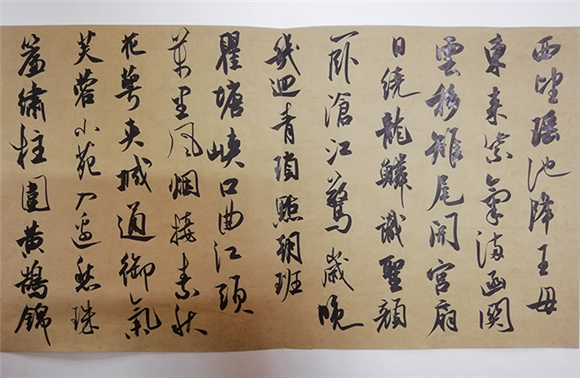 西望瑶池降王母
東来紫氣滿函關
雲移雉尾開宮扇
日繞龍鱗識聖顏
一卧滄江驚歲晚
幾迴青瑣點朝班
瞿塘峽口曲江頭
萬里風烟接素秋
花萼夾城通御氣
芙蓉小苑入邊愁珠
簾繡柱圍黃鵠錦